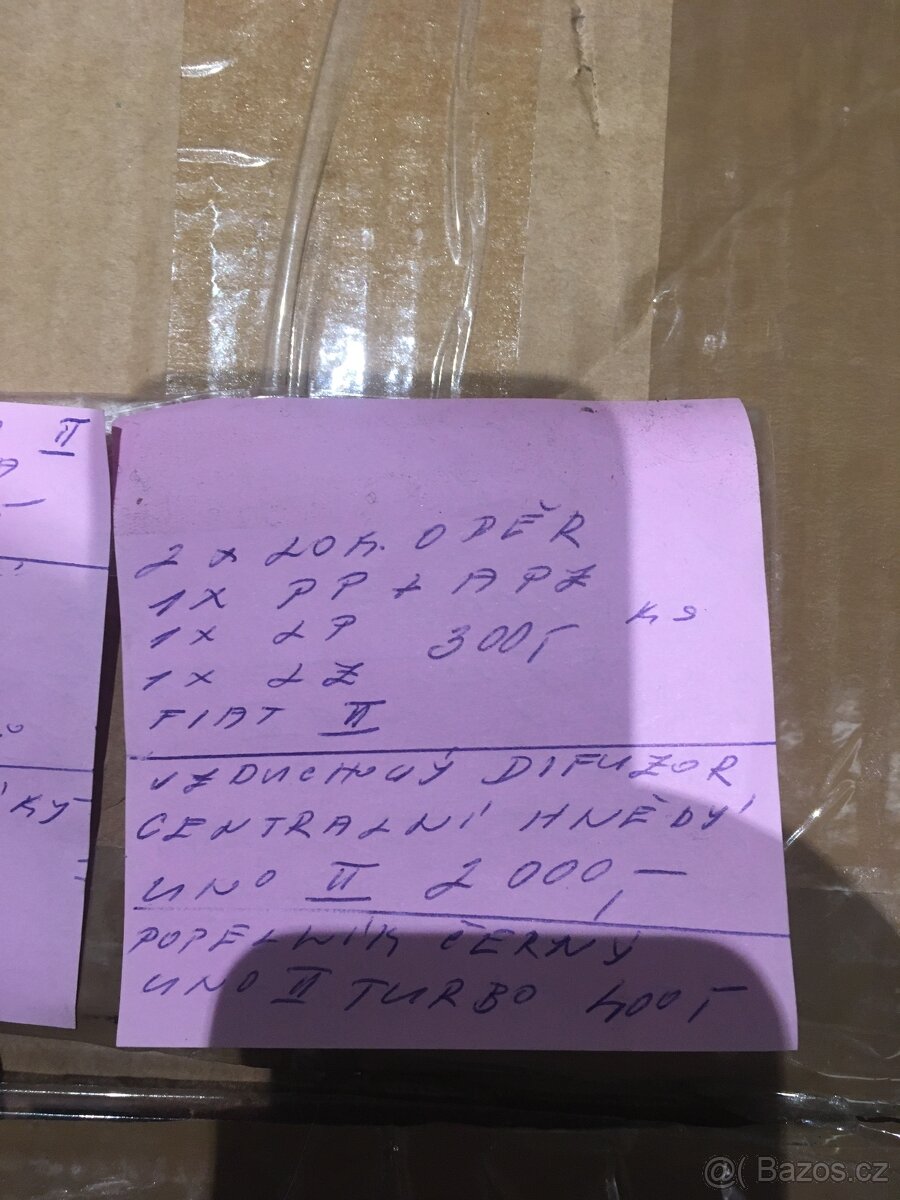 II
A
–
ÍKÝ
2 x LOK. ODĚR
1X PP + A PZ
1X LP 300,- KS
1X LZ
FIAT II
VZDUCHOVÝ DIFUZOR
CENTRALNÍ HNĚDÝ
UNO II 2 000,-
POPELNÍK ČERNÝ
UNO II TURBO 400,-
@( Bazos.cz